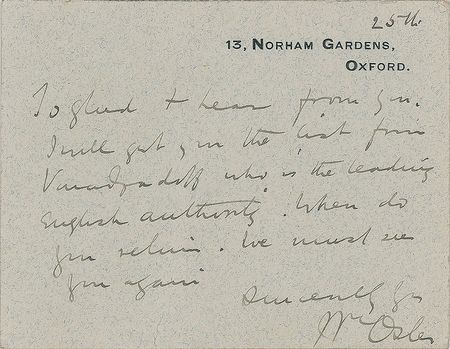 25th
13, NORHAM GARDENS,
OXFORD.
So glad to hear from you.
I will get you the list from
Vinogradoff who is the leading
English authority. When do
you return. We must see
you again
Sincerely yrs
Wm Osler